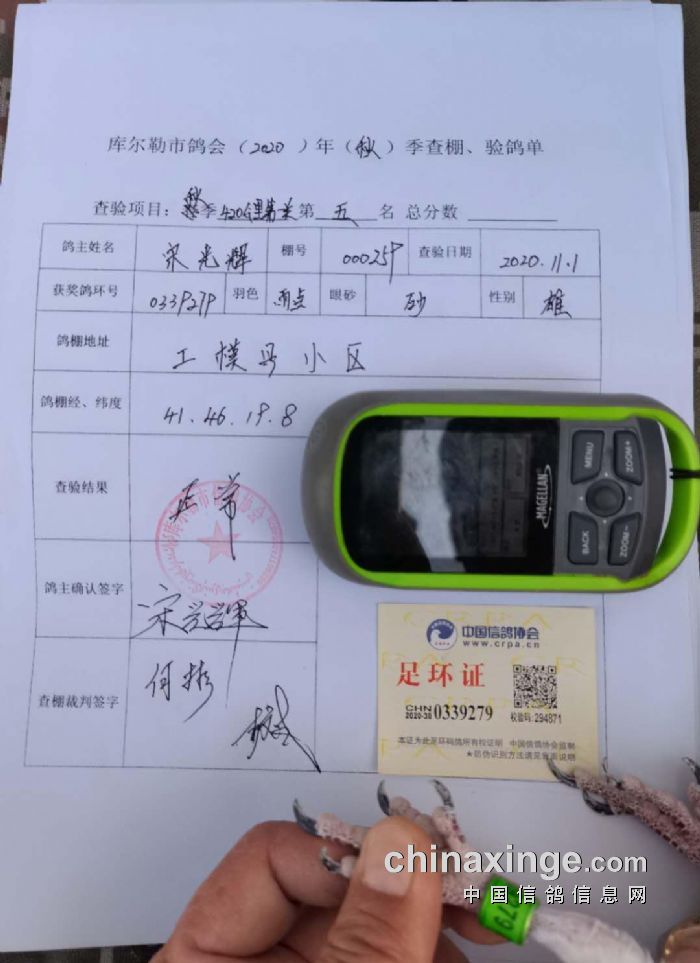 库尔勒市鸽会（2020）年（秋）季查棚、验鸽单
查验项目：秋季420公里第五名 总分数
鸽主姓名 宋光辉 棚号 000259 查验日期 2020.11.1
获奖鸽环号 0339279 羽色 雨点 眼砂 砂 性别 雄
鸽棚地址 工模号小区
鸽棚经、纬度 41.46.19.8
查验结果 正常
鸽主确认签字 宋
查棚裁判签字 何彬
MAGELLAN
MENU
ZOOM+
BACK
ZOOM-
中国信鸽协会
www.crpa.cn
足环证
CHN
2020-30 0339279
校验码:294871
本证为此足环码鸽所有权证明 中国信鸽协会监制
★防伪识别方法请见背面说明
279
chinaxinge.com
中国信鸽信息网